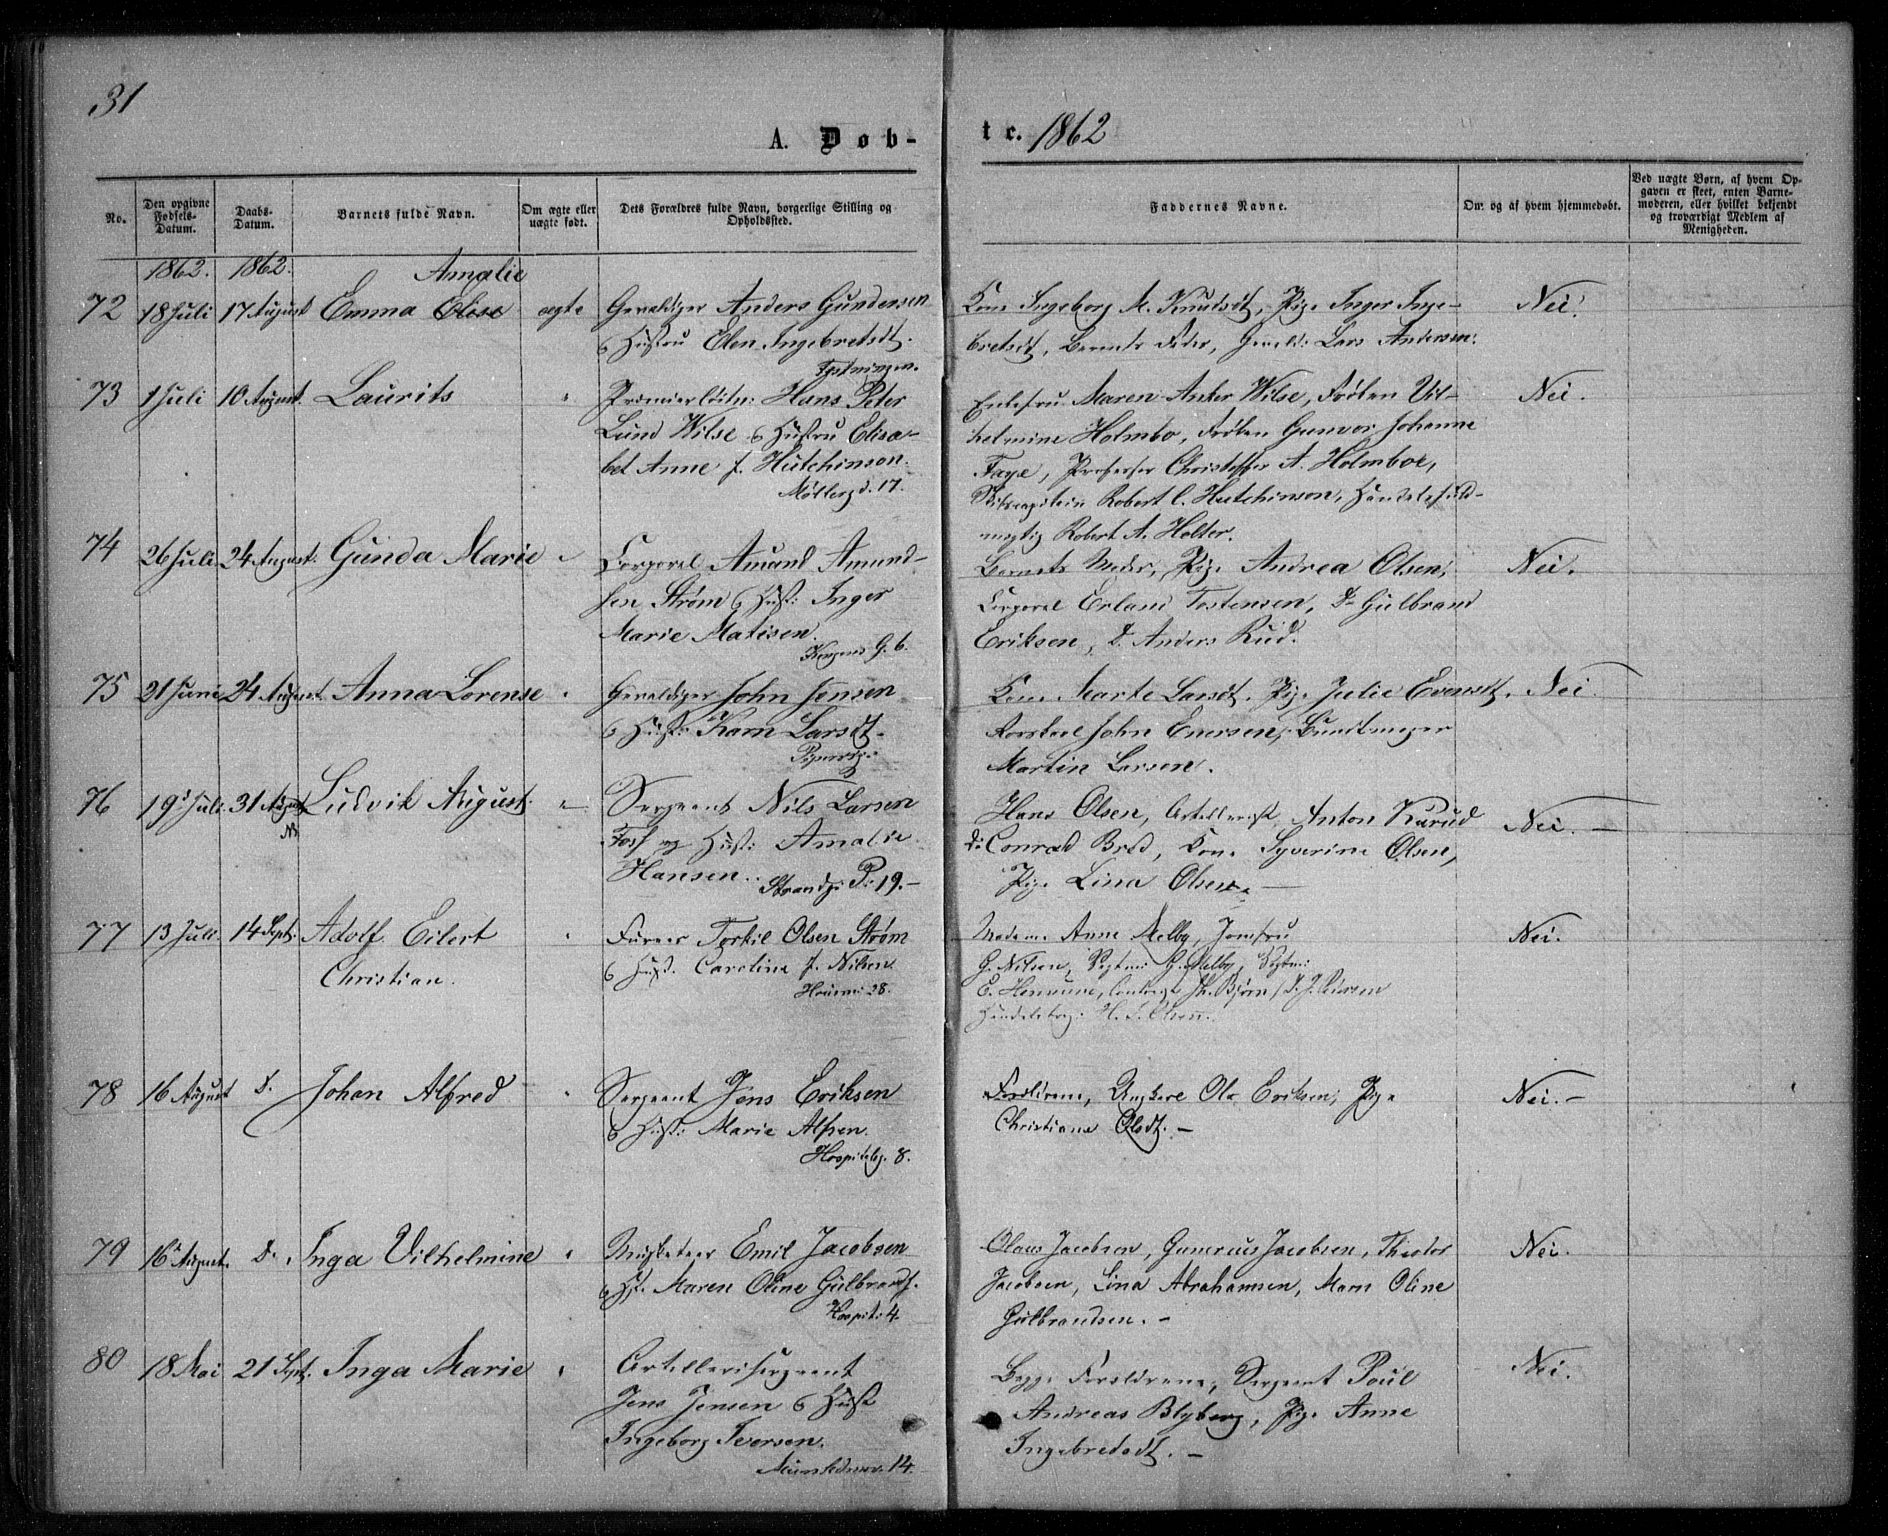 31
A. Døb-
te. 1862
No.
Den opgivne Fødsels-Datum.
Daabs-Datum.
Barnets fulde Navn.
Om ægte eller uægte født.
Dets Forældres fulde Navn, borgerlige Stilling og Opholdssted.
Faddernes Navne.
Om og af hvem hjemmedøbt.
Ved uægte Børn, af hvem Op-
gaven er skeet, enten Barne-
moderen, eller hvilket bekjendt
og troværdigt Medlem af
Menigheden.
1862. 1862. Amalie
72 18 Juli 17 August Emma Olise ægte Gevaldiger Anders Gundersen
& Hustru Elen Ingebretsdt.
Fæstningen.
Kone Ingeborg M. Knudsdt, Pige Inger Inge-
bretsdt, Barnets Fader, Gevald: Lars Andersen.
Nei.
73 1 Juli 10 August Laurits " Premierløitn: Hans Peter
Lund Wilse & Hustru Elisa-
bet Anne f. Hutchinson.
Møllergd. 17.
Enkefru Maren Anker Wilse, Frøken Vil-
helmine Holmbo, Frøken Gunvor Johanne
Faye, Professor Christoffer A. Holmboe,
Robert C. Hutchinson, Handelsfuld-
mægtig Robert A. Holter.
Nei.
74 26 Juli 24 August. Gunda Marie " Corporal Amund Amund-
sen Strøm & Hust: Inger
Marie Matisen.
Kongens G. 6.
Barnets Moder, Pige Andrea Olsen,
Corporal Erland Tostensen, Do Gulbrand
Eriksen, D. Anders Rud.
Nei.
75 21 Juni 24 August. Anna Lorense " Gevaldiger John Jonsen
& Hust: Karn Larsdt.
Pipervig:
Kone Marte Larsdt. Pige Julie Evensdt.
John Enersen, Bundtmager
Martin Larsen.
Nei.
76 19 Juli. 31 August Ludvik August. " Sergeant Nils Larsen
Foss og Hust: Amalie
Hansen. Strandg: P: 19.-
Hans Olsen, Artillerist Anton Kurud
D: Conrad Bred, Kone Syverine Olsen,
Pige Lina Olsen. -
Nei. -
77 13 Juli. 14 Sept: Adolf Eilert
Christian.
" Furer Torkil Olsen Strøm
& Hust. Caroline f. Nilsen.
28.
Madam Anne Melby, Jomfru
G. Nilsen, G. Melby,
Nei.
78 16 August D. Johan Alfred " Sergeant Jens Eriksen
& Hust: Marie Alfsen.
Hospitalsg. 8.
Forældrene, Ungkarl Ole Eriksen, Pige
Christiane Olsdt. -
Nei. -
79 16 August. D. Inga Vilhelmine " Musketeer Emil Jacobsen
& Hst. Maren Oline Gulbrands.
Hospit: 4.
Olaus Jacobsen, Gunerius Jacobsen, Theodor
Jacobsen, Lina Abrahamsen, Marn Oline
Gulbrandsen. -
Nei.
80 18 Mai 21 Sept. Inga Marie " Artillerisergeant
Jens Jensen & Hust
Ingeborg Iversen.
14.
Begge Forældrene, Sergeant Poul
Andreas Blyberg, Pige Anne
Ingebretsdt. -
Nei.